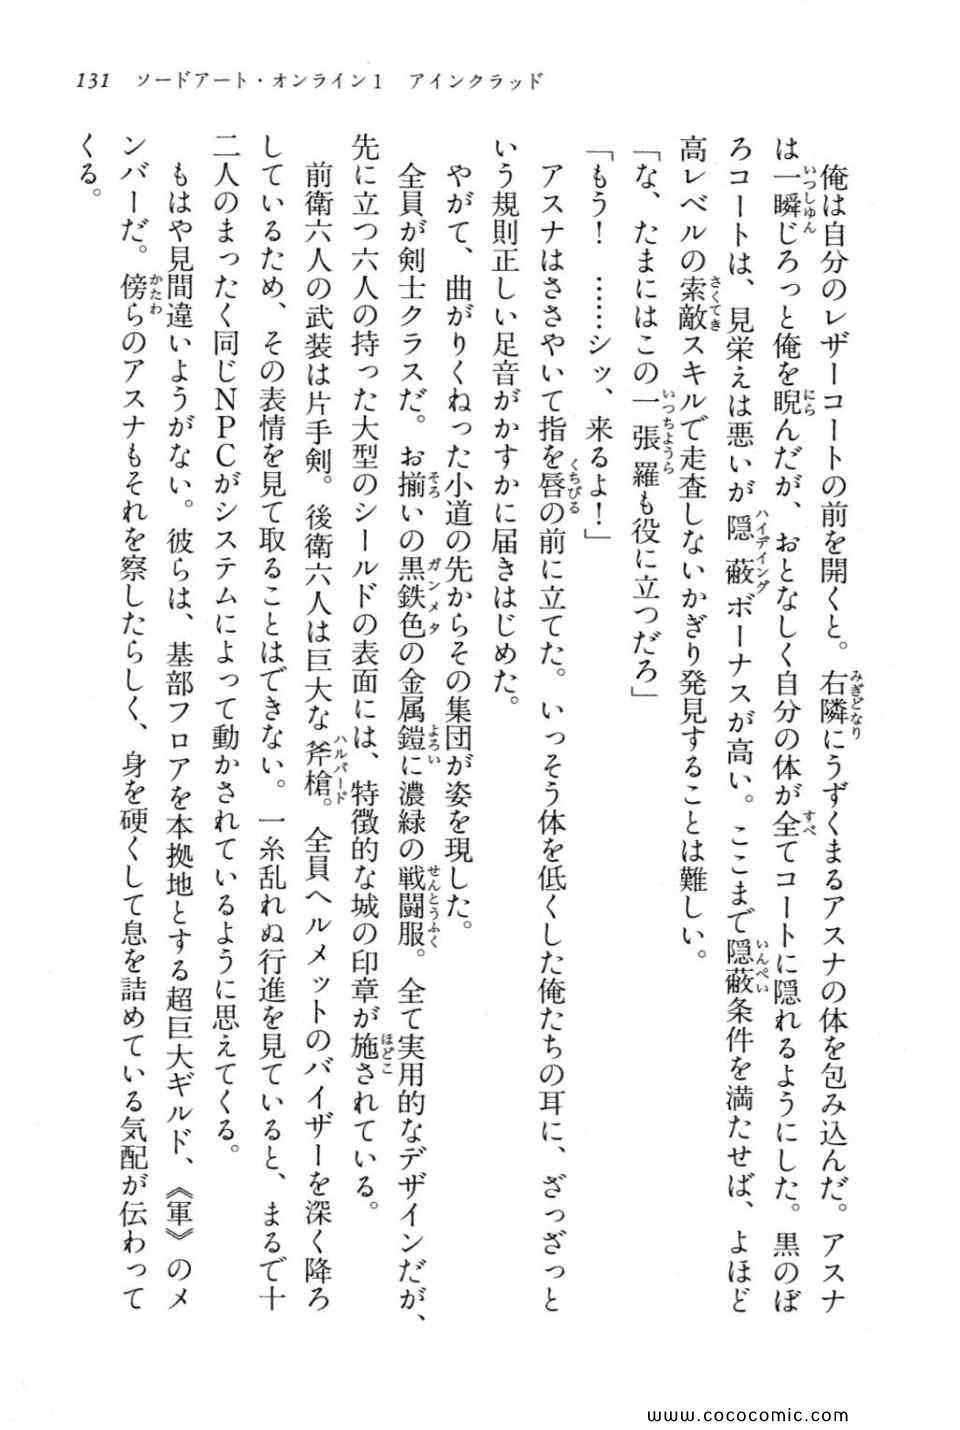 131 ソードアート・オンライン1 アインクラッド
俺は自分のレザーコートの前を開くと。右隣にうずくまるアスナの体を包み込んだ。アスナ
は一瞬じろっと俺を睨んだが、おとなしく自分の体が全てコートに隠れるようにした。黒のぼ
ろコートは、見栄えは悪いが隠蔽ボーナスが高い。ここまで隠蔽条件を満たせば、よほど
高レベルの索敵スキルで走査しないかぎり発見することは難しい。
「な、たまにはこの一張羅も役に立つだろ」
「もう！ ……シッ、来るよ！」
アスナはささやいて指を唇の前に立てた。いっそう体を低くした俺たちの耳に、ざっざっと
いう規則正しい足音がかすかに届きはじめた。
やがて、曲がりくねった小道の先からその集団が姿を現した。
全員が剣士クラスだ。お揃いの黒鉄色の金属鎧に濃緑の戦闘服。全て実用的なデザインだが、
先に立つ六人の持った大型のシールドの表面には、特徴的な城の印章が施されている。
前衛六人の武装は片手剣。後衛六人は巨大な斧槍。全員ヘルメットのバイザーを深く降ろ
しているため、その表情を見て取ることはできない。一糸乱れぬ行進を見ていると、まるで十
二人のまったく同じNPCがシステムによって動かされているように思えてくる。
もはや見間違いようがない。彼らは、基部フロアを本拠地とする超巨大ギルド、《軍》のメ
ンバーだ。傍らのアスナもそれを察したらしく、身を硬くして息を詰めている気配が伝わって
くる。
www.cococomic.com